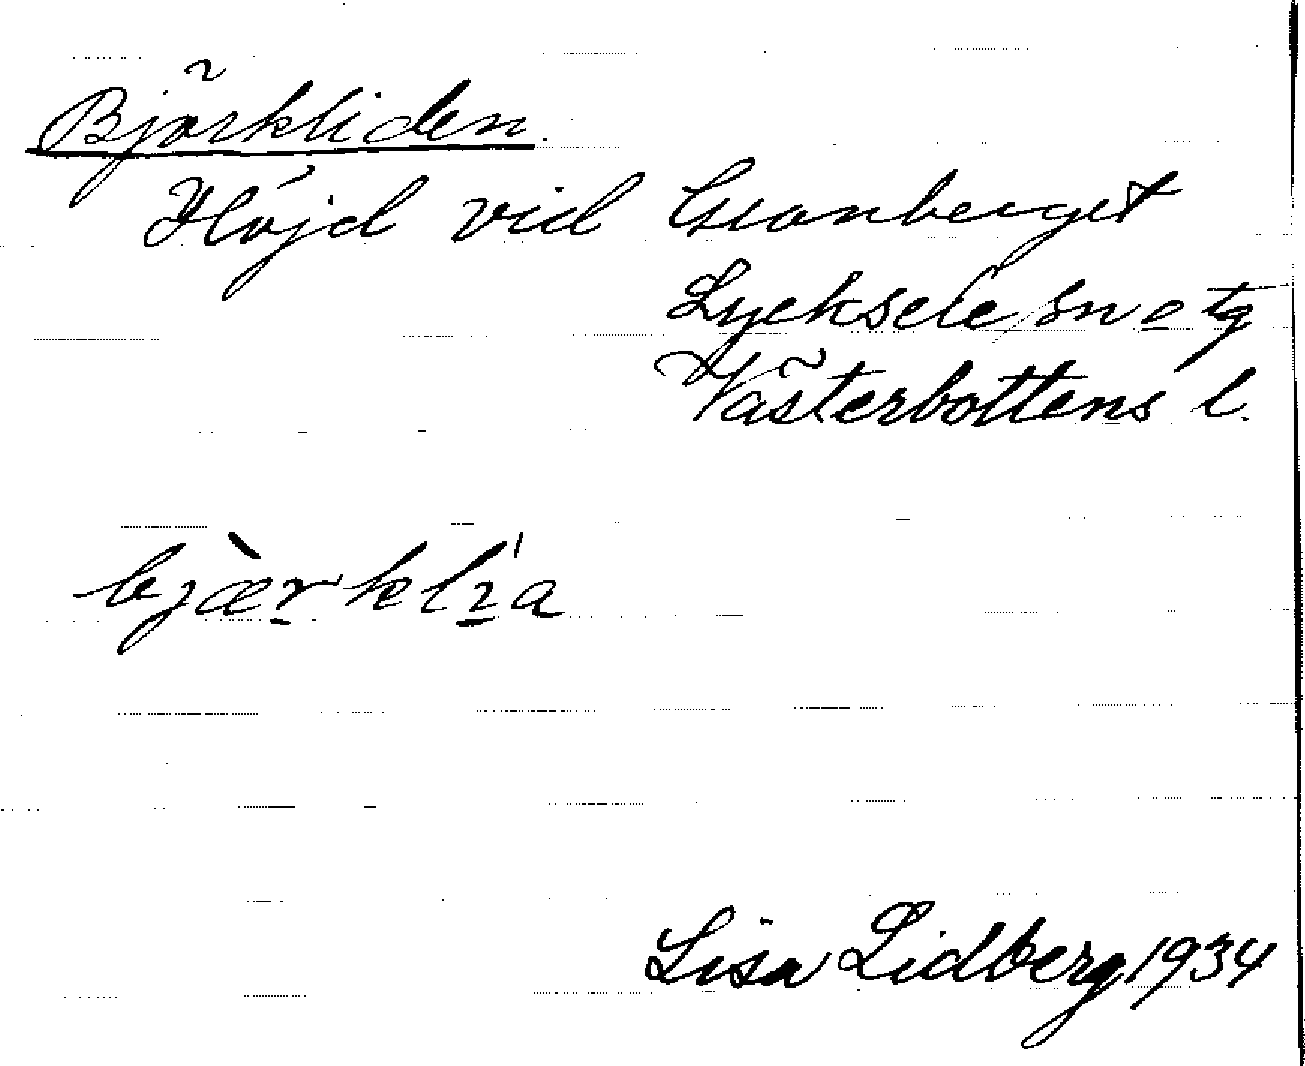 Björkliden.
Höjd vid Granberget
Lycksele sn o tg
Västerbottens l.
bjæ̀rklı́a
Lisa Lidberg 1934